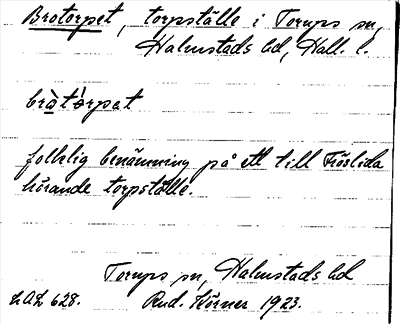 Brotorpet, torpställe i Torups sn,
Halmstads hd, Hall. l.
bro̊̀tórpet
folklig benämning på ett till Fröslida
hörande torpställe.
Torups sn, Halmstads hd
LAL 628. Rud. Hörner 1923.